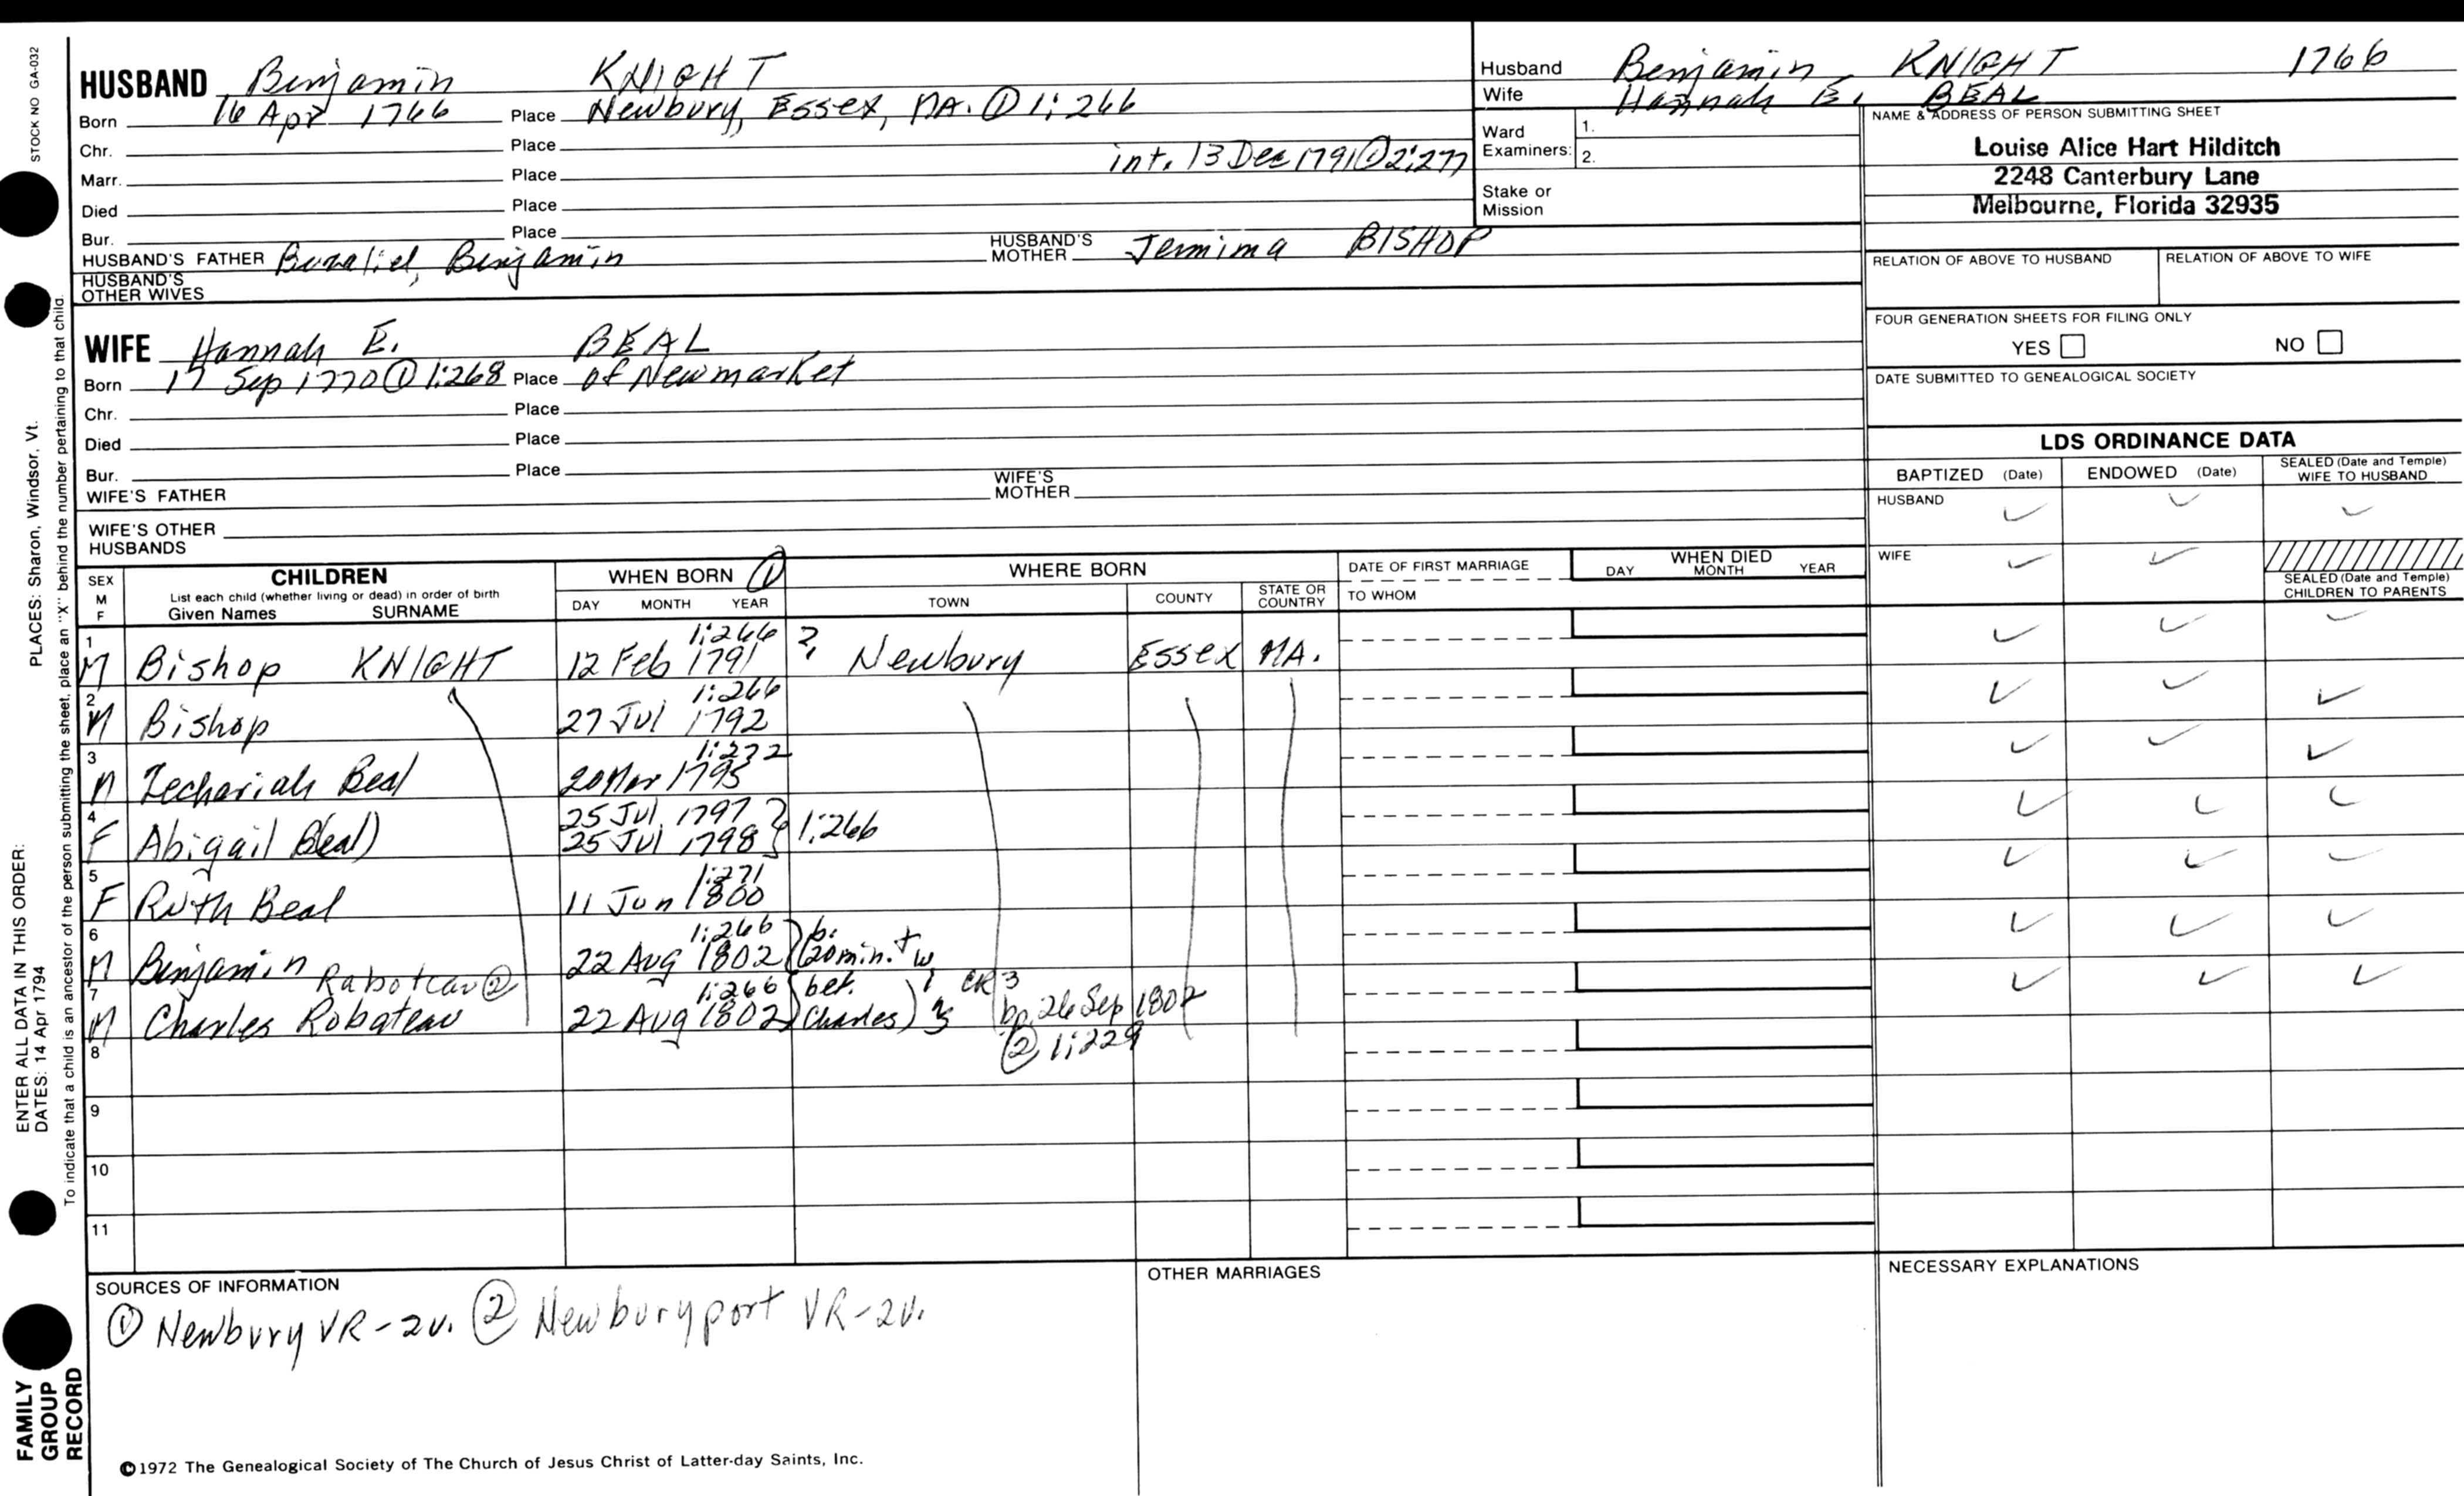 STOCK NO GA-032
PLACES: Sharon, Windsor, Vt.
ENTER ALL DATA IN THIS ORDER:
DATES: 14 Apr 1794
To indicate that a child is an ancestor of the person submitting the sheet, place an "X" behind the number pertaining to that child.
FAMILY
GROUP
RECORD
HUSBAND Benjamin KNIGHT
Born 16 Apr 1766 Place Newbury, Essex, MA. ① 1:266
Chr. Place
int. 13 Dec 1791 ① 2:277
Marr. Place
Died Place
Bur. Place
HUSBAND'S FATHER Buzaliel, Benjamin HUSBAND'S MOTHER Jemima BISHOP
HUSBAND'S
OTHER WIVES
WIFE Hannah E. BEAL
Born 17 Sep 1770 ① 1:268 Place of Newmarket
Chr. Place
Died Place
Bur. Place
WIFE'S FATHER WIFE'S MOTHER
WIFE'S OTHER
HUSBANDS
Husband Benjamin KNIGHT 1766
Wife Hannah E. BEAL
Ward
Examiners: 1.
2.
Stake or
Mission
NAME & ADDRESS OF PERSON SUBMITTING SHEET
Louise Alice Hart Hilditch
2248 Canterbury Lane
Melbourne, Florida 32935
RELATION OF ABOVE TO HUSBAND RELATION OF ABOVE TO WIFE
FOUR GENERATION SHEETS FOR FILING ONLY
YES NO
DATE SUBMITTED TO GENEALOGICAL SOCIETY
LDS ORDINANCE DATA
BAPTIZED (Date) ENDOWED (Date) SEALED (Date and Temple) WIFE TO HUSBAND
HUSBAND ✓ ✓ ✓
WIFE ✓ ✓
SEALED (Date and Temple)
CHILDREN TO PARENTS
SEX
M
F
CHILDREN
List each child (whether living or dead) in order of birth
Given Names SURNAME
WHEN BORN ①
DAY MONTH YEAR
WHERE BORN
TOWN COUNTY STATE OR COUNTRY
DATE OF FIRST MARRIAGE
TO WHOM
WHEN DIED
DAY MONTH YEAR
1 1:266
M Bishop KNIGHT 12 Feb 1791 ? Newbury Essex MA. ✓ ✓ ✓
2 1:266
M Bishop 27 Jul 1792 ✓ ✓ ✓
3 1:272
M Zechariah Beal 20 Mar 1795 ✓ ✓ ✓
4 25 Jul 1797
F Abigail B(eal) 25 Jul 1798 } 1:266 ✓ ✓ ✓
5 1:271
F Ruth Beal 11 Jun 1800 ✓ ✓ ✓
6 1:266 b.
M Benjamin Raboteau ② 22 Aug 1802 (20 min. t w ✓ ✓ ✓
7 1:266 bef. i CR3
M Charles Robateau 22 Aug 1802 Charles) bp. 26 Sep 1802 ✓ ✓ ✓
8 ② 1:229
9
10
11
SOURCES OF INFORMATION
① Newbury VR-2v. ② Newburyport VR-2v.
OTHER MARRIAGES
NECESSARY EXPLANATIONS
©1972 The Genealogical Society of The Church of Jesus Christ of Latter-day Saints, Inc.